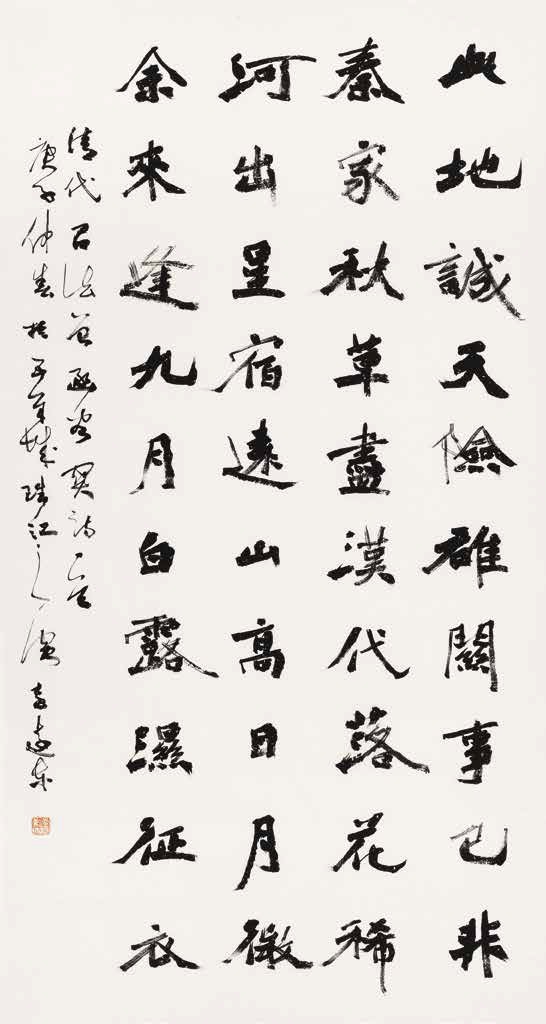 此地誠天險雄關事已非
秦家秋草盡漢代落花稀
河出星宿遠山高日月微
余來逢九月白露濕征衣
清代呂法曾函谷關詩一首
庚子仲春於子年城珠江之濱